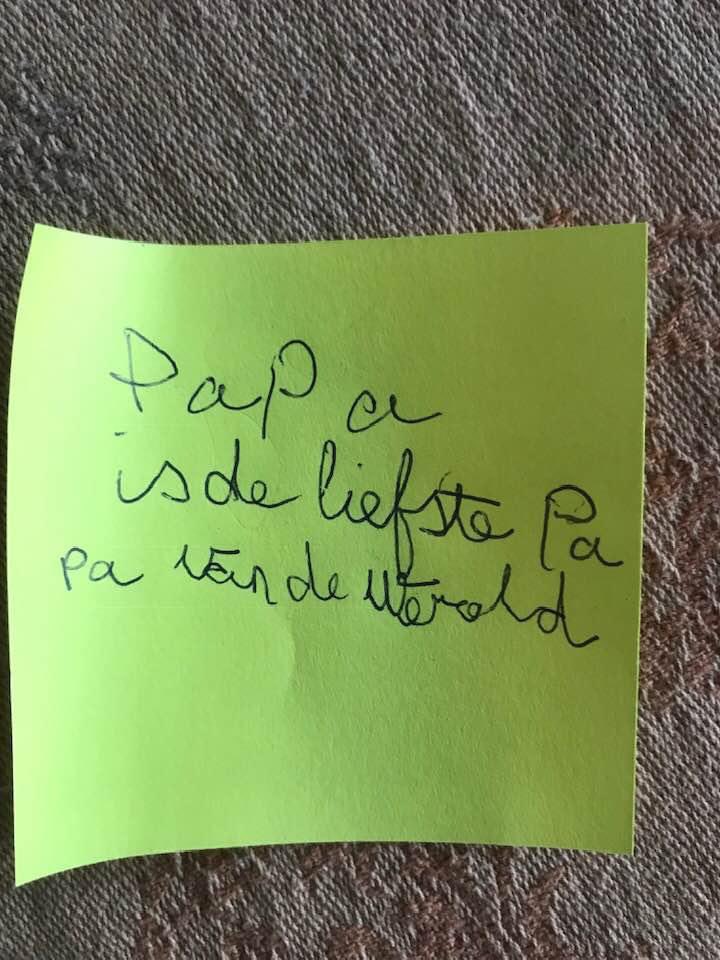 PaPa
is de liefste Pa
pa van de werold